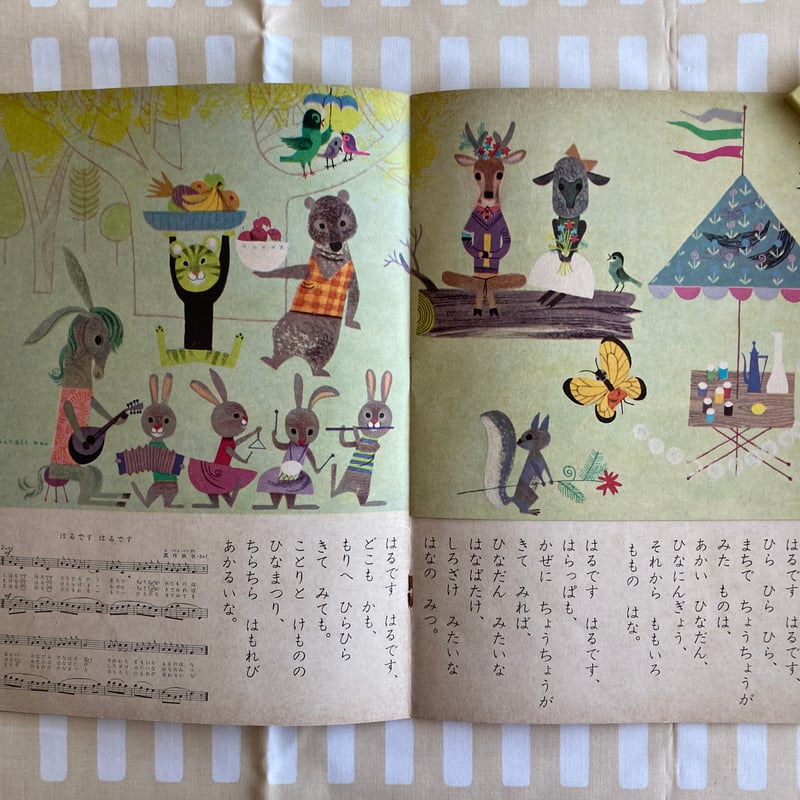 はるです　はるです、
ひら　ひら　ひら、
まちで　ちょうちょうが
みた　ものは、
あかい　ひなだん、
ひなにんぎょう、
それから　ももいろ
ももの　はな。
はるです　はるです、
はらっぱも、
かぜに　ちょうちょうが
きて　みれば、
ひなだん　みたいな
はなばたけ、
しろざけ　みたいな
はなの　みつ。
はるです　はるです、
どこも　かも、
もりへ　ひらひら
きて　みても。
ことりと　けものの
ひなまつり、
ちらちら　はもれび
あかるいな。
はるです はるです